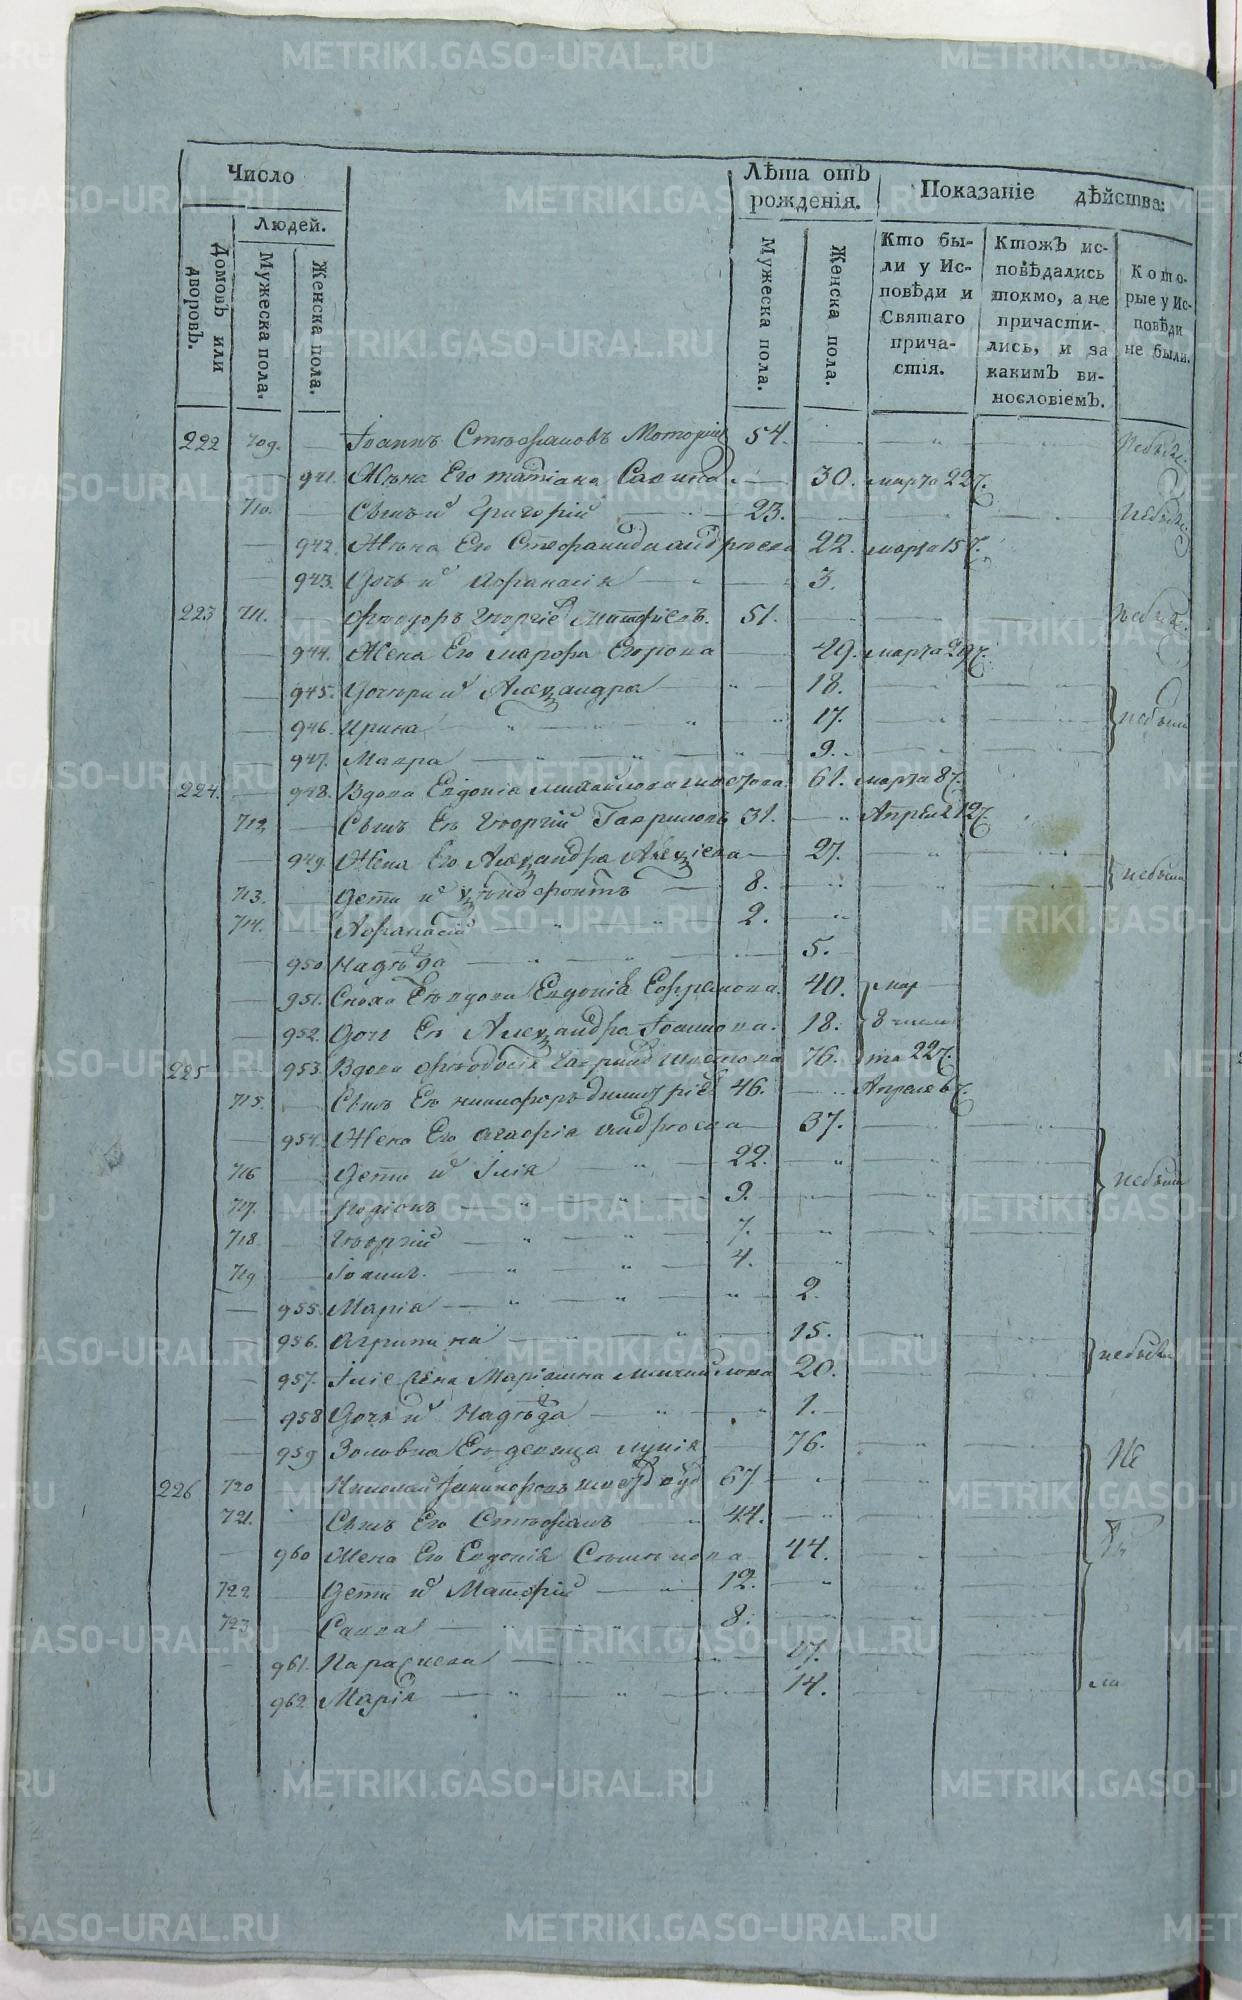 Число
Людей.
Домовъ или дворовъ.
Мужеска пола.
Женска пола.
Лѣта отъ рожденія.
Мужеска пола.
Женска пола.
Показаніе дѣйства:
Кто бы-
ли у Ис-
повѣди и
Святаго
прича-
стія.
Ктожъ ис-
повѣдались
токмо, а не
причасти-
лись, и за
какимъ ви-
нословіемъ.
Кото-
рые у Ис-
повѣди
не были.
222 709. Іоаннъ Стефановъ 54. небылъ
941. Жена Его татіана Савина 30. марта 22.
710. Сынъ и Григорій 23. небылъ
942. Жена Его Стефанида андреева 22. марта 15
943. Дочь и Афанасія 3.
223 711. Феодоръ Георгіе 51. небылъ
944. Жена Его марфа Егорова 49. марта 29
945. Дочери и Александра 18.
946. Ирина 17. небыли
947. Мавра 9.
224. 948. Вдова Евдокія михайлова 61. марта 8
712 Сынъ Ея Георгій Гавриловъ 31. Апреля 12
949. Жена Его Александра Алексіева 27. небыли
713. Дети и Ксенофонтъ 8.
714. Афанасій 2.
950 Надежда 5.
951. Сноха Ея вдова Евдокія Ефремова. 40. мар
952. Дочь Ея Александра Іоаннова. 18. 8 числа
225 953. Вдова Феодосія 76. та 22
715. Сынъ Ея никифоръ димитріе 46. Апреля 6
954. Жена Его Агафія андреева 37.
716 Дети и Ілія 22. небыли
717. Родіонъ 9.
718 Георгій 7.
719 Іоаннъ. 4.
955. Марія 2.
956. Агрипина 15. небыли
957. Іліе жена Маріамна михайлова 20.
958 Дочь и Надежда 1.
959 Золовка Ея девица 76. Не
226 720 67
721. Сынъ Его Стефанъ 44. бы
960 Жена Его Евдокія 44.
722 Дети и Матфій 12.
723 Савва 8.
961. Параскева 17.
962 Марія 14. ли
METRIKI.GASO-URAL.RU